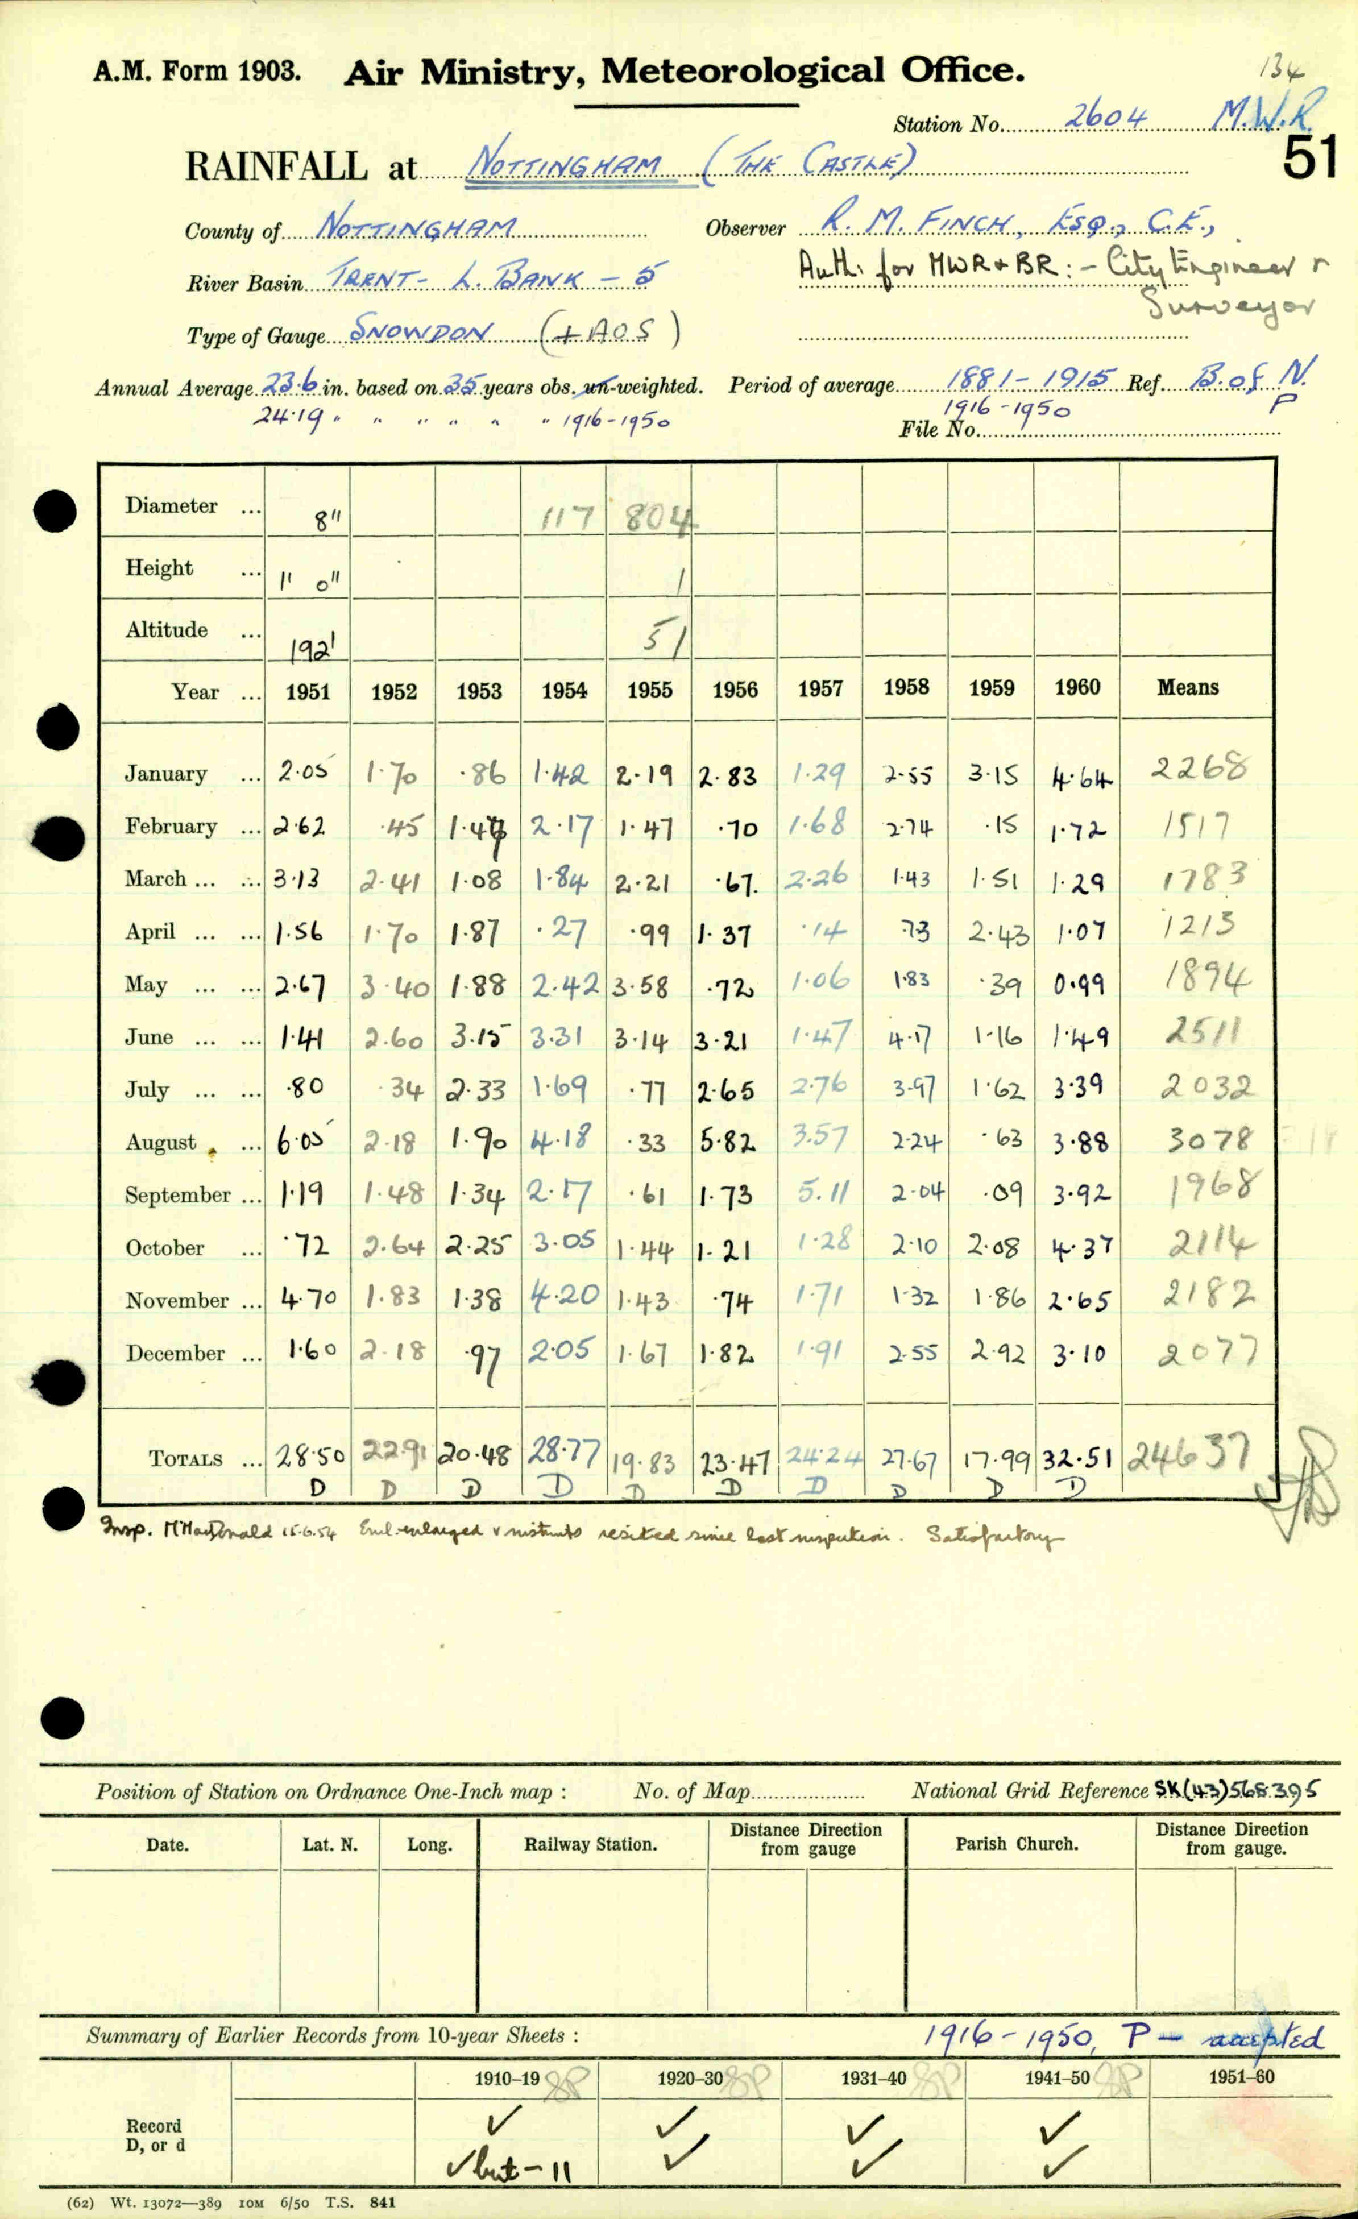 134
A.M. Form 1903. Air Ministry, Meteorological Office.
Station No. 2604 M.W.R.
51
RAINFALL at NOTTINGHAM (THE CASTLE)
County of NOTTINGHAM Observer R. M. FINCH, ESQ., C.E.,
River Basin TRENT - L. BANK - 5 Auth: for MWR + BR :- City Engineer &
Surveyor
Type of Gauge SNOWDON (+ AOS)
Annual Average 23.6 in. based on 35 years obs. un-weighted. Period of average 1881-1915 Ref. B. of N.
24.19 " " " " " " 1916-1950 1916-1950 P
File No.
Diameter ... 8" 117 804
Height ... 1' 0" 1
Altitude ... 192' 51
Year ... 1951 1952 1953 1954 1955 1956 1957 1958 1959 1960 Means
January ... 2.05 1.70 .86 1.42 2.19 2.83 1.29 2.55 3.15 4.64 2268
February ... 2.62 .45 1.47 2.17 1.47 .70 1.68 2.74 .15 1.72 1517
March ... ... 3.13 2.41 1.08 1.84 2.21 .67. 2.26 1.43 1.51 1.29 1783
April ... ... 1.56 1.70 1.87 .27 .99 1.37 .14 .73 2.43 1.07 1213
May ... ... 2.67 3.40 1.88 2.42 3.58 .72 1.06 1.83 .39 0.99 1894
June ... ... 1.41 2.60 3.15 3.31 3.14 3.21 1.47 4.17 1.16 1.49 2511
July ... ... .80 .34 2.33 1.69 .77 2.65 2.76 3.97 1.62 3.39 2032
August ... 6.05 2.18 1.90 4.18 .33 5.82 3.57 2.24 .63 3.88 3078
September ... 1.19 1.48 1.34 2.17 .61 1.73 5.11 2.04 .09 3.92 1968
October ... .72 2.64 2.25 3.05 1.44 1.21 1.28 2.10 2.08 4.37 2114
November ... 4.70 1.83 1.38 4.20 1.43 .74 1.71 1.32 1.86 2.65 2182
December ... 1.60 2.18 .97 2.05 1.67 1.82 1.91 2.55 2.92 3.10 2077
TOTALS ... 28.50 22.91 20.48 28.77 19.83 23.47 24.24 27.67 17.99 32.51 24637
D D D D D D D D D D
Insp. M MacDonald 15.6.54 Encl. enlarged & instmts resited since last inspection. Satisfactory
Position of Station on Ordnance One-Inch map : No. of Map National Grid Reference SK(43)568.395
Date. Lat. N. Long. Railway Station. Distance Direction from gauge Parish Church. Distance Direction from gauge.
Summary of Earlier Records from 10-year Sheets : 1916-1950, P - accepted
1910–19 SP 1920–30 SP 1931–40 SP 1941–50 SP 1951–60
Record ✓ ✓ ✓ ✓
D, or d ✓ but - 11 ✓ ✓ ✓
(62) Wt. 13072—389 10M 6/50 T.S. 841